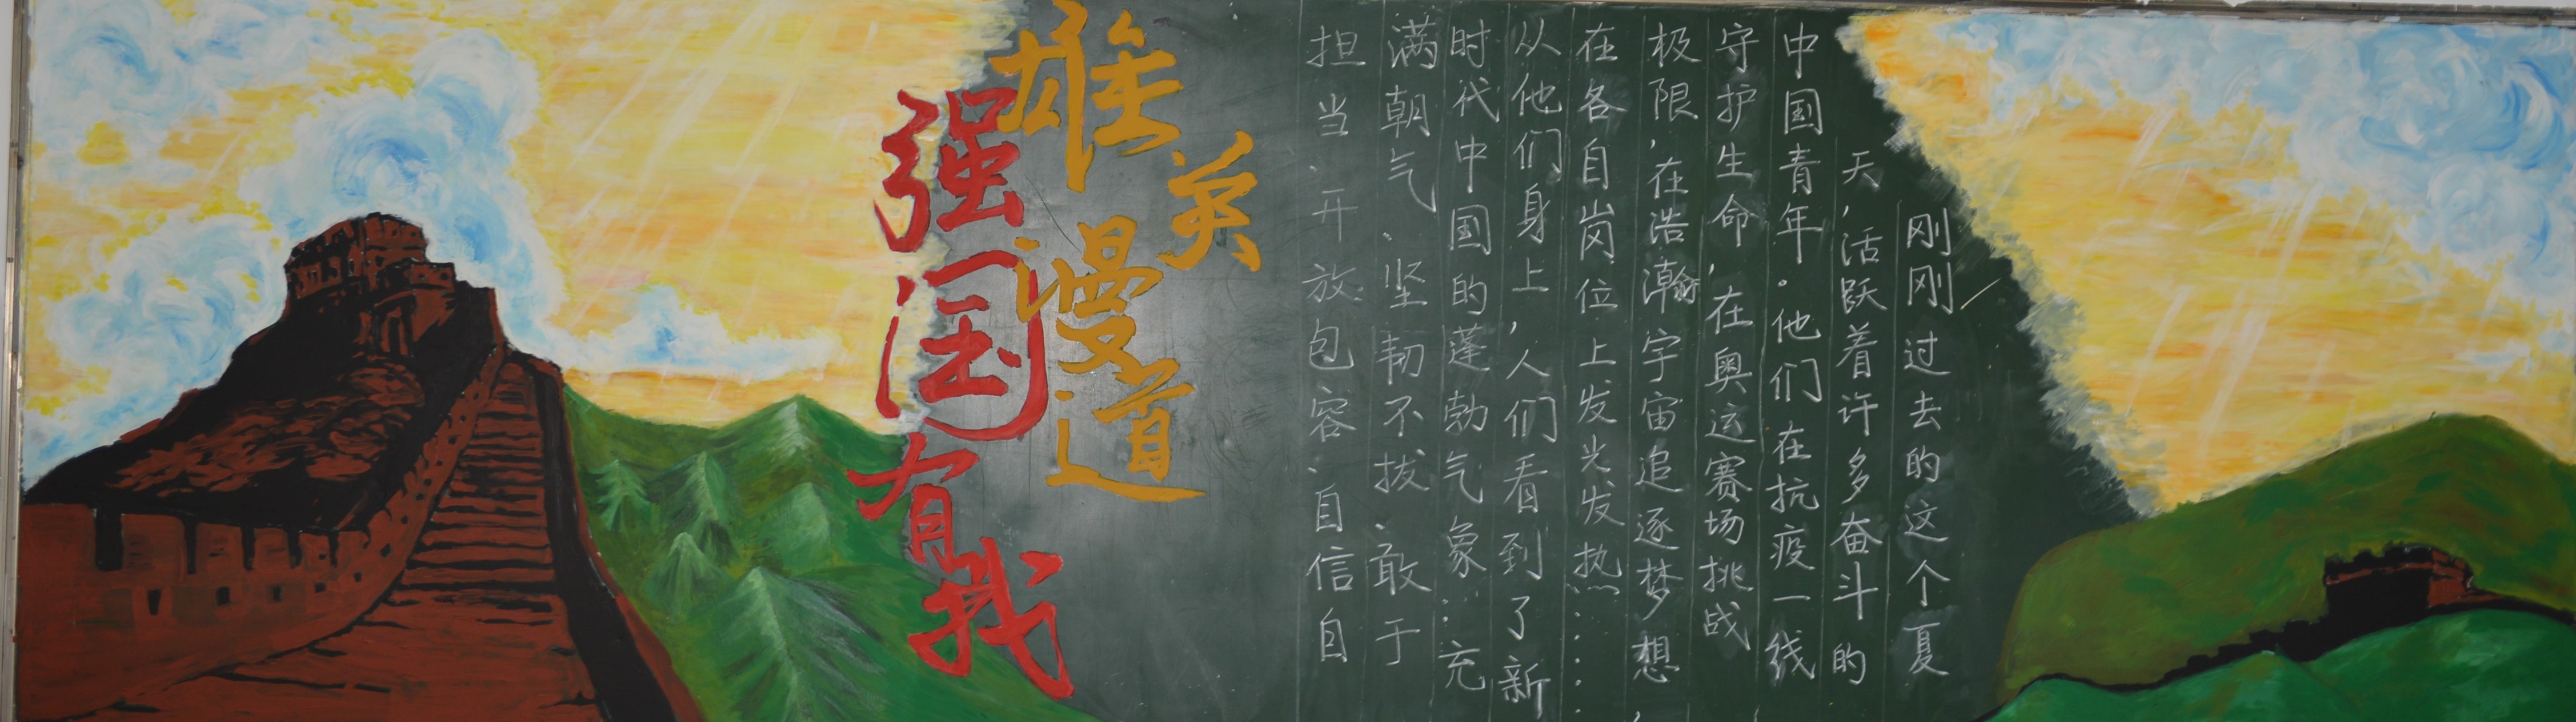 刚刚过去的这个夏
天,活跃着许多奋斗的
中国青年。他们在抗疫一线
守护生命,在奥运赛场挑战
极限,在浩瀚宇宙追逐梦想,
在各自岗位上发光发热……
从他们身上,人们看到了新
时代中国的蓬勃气象:充
满朝气、坚韧不拔、敢于
担当、开放包容、自信自
英雄漫道
强国有我